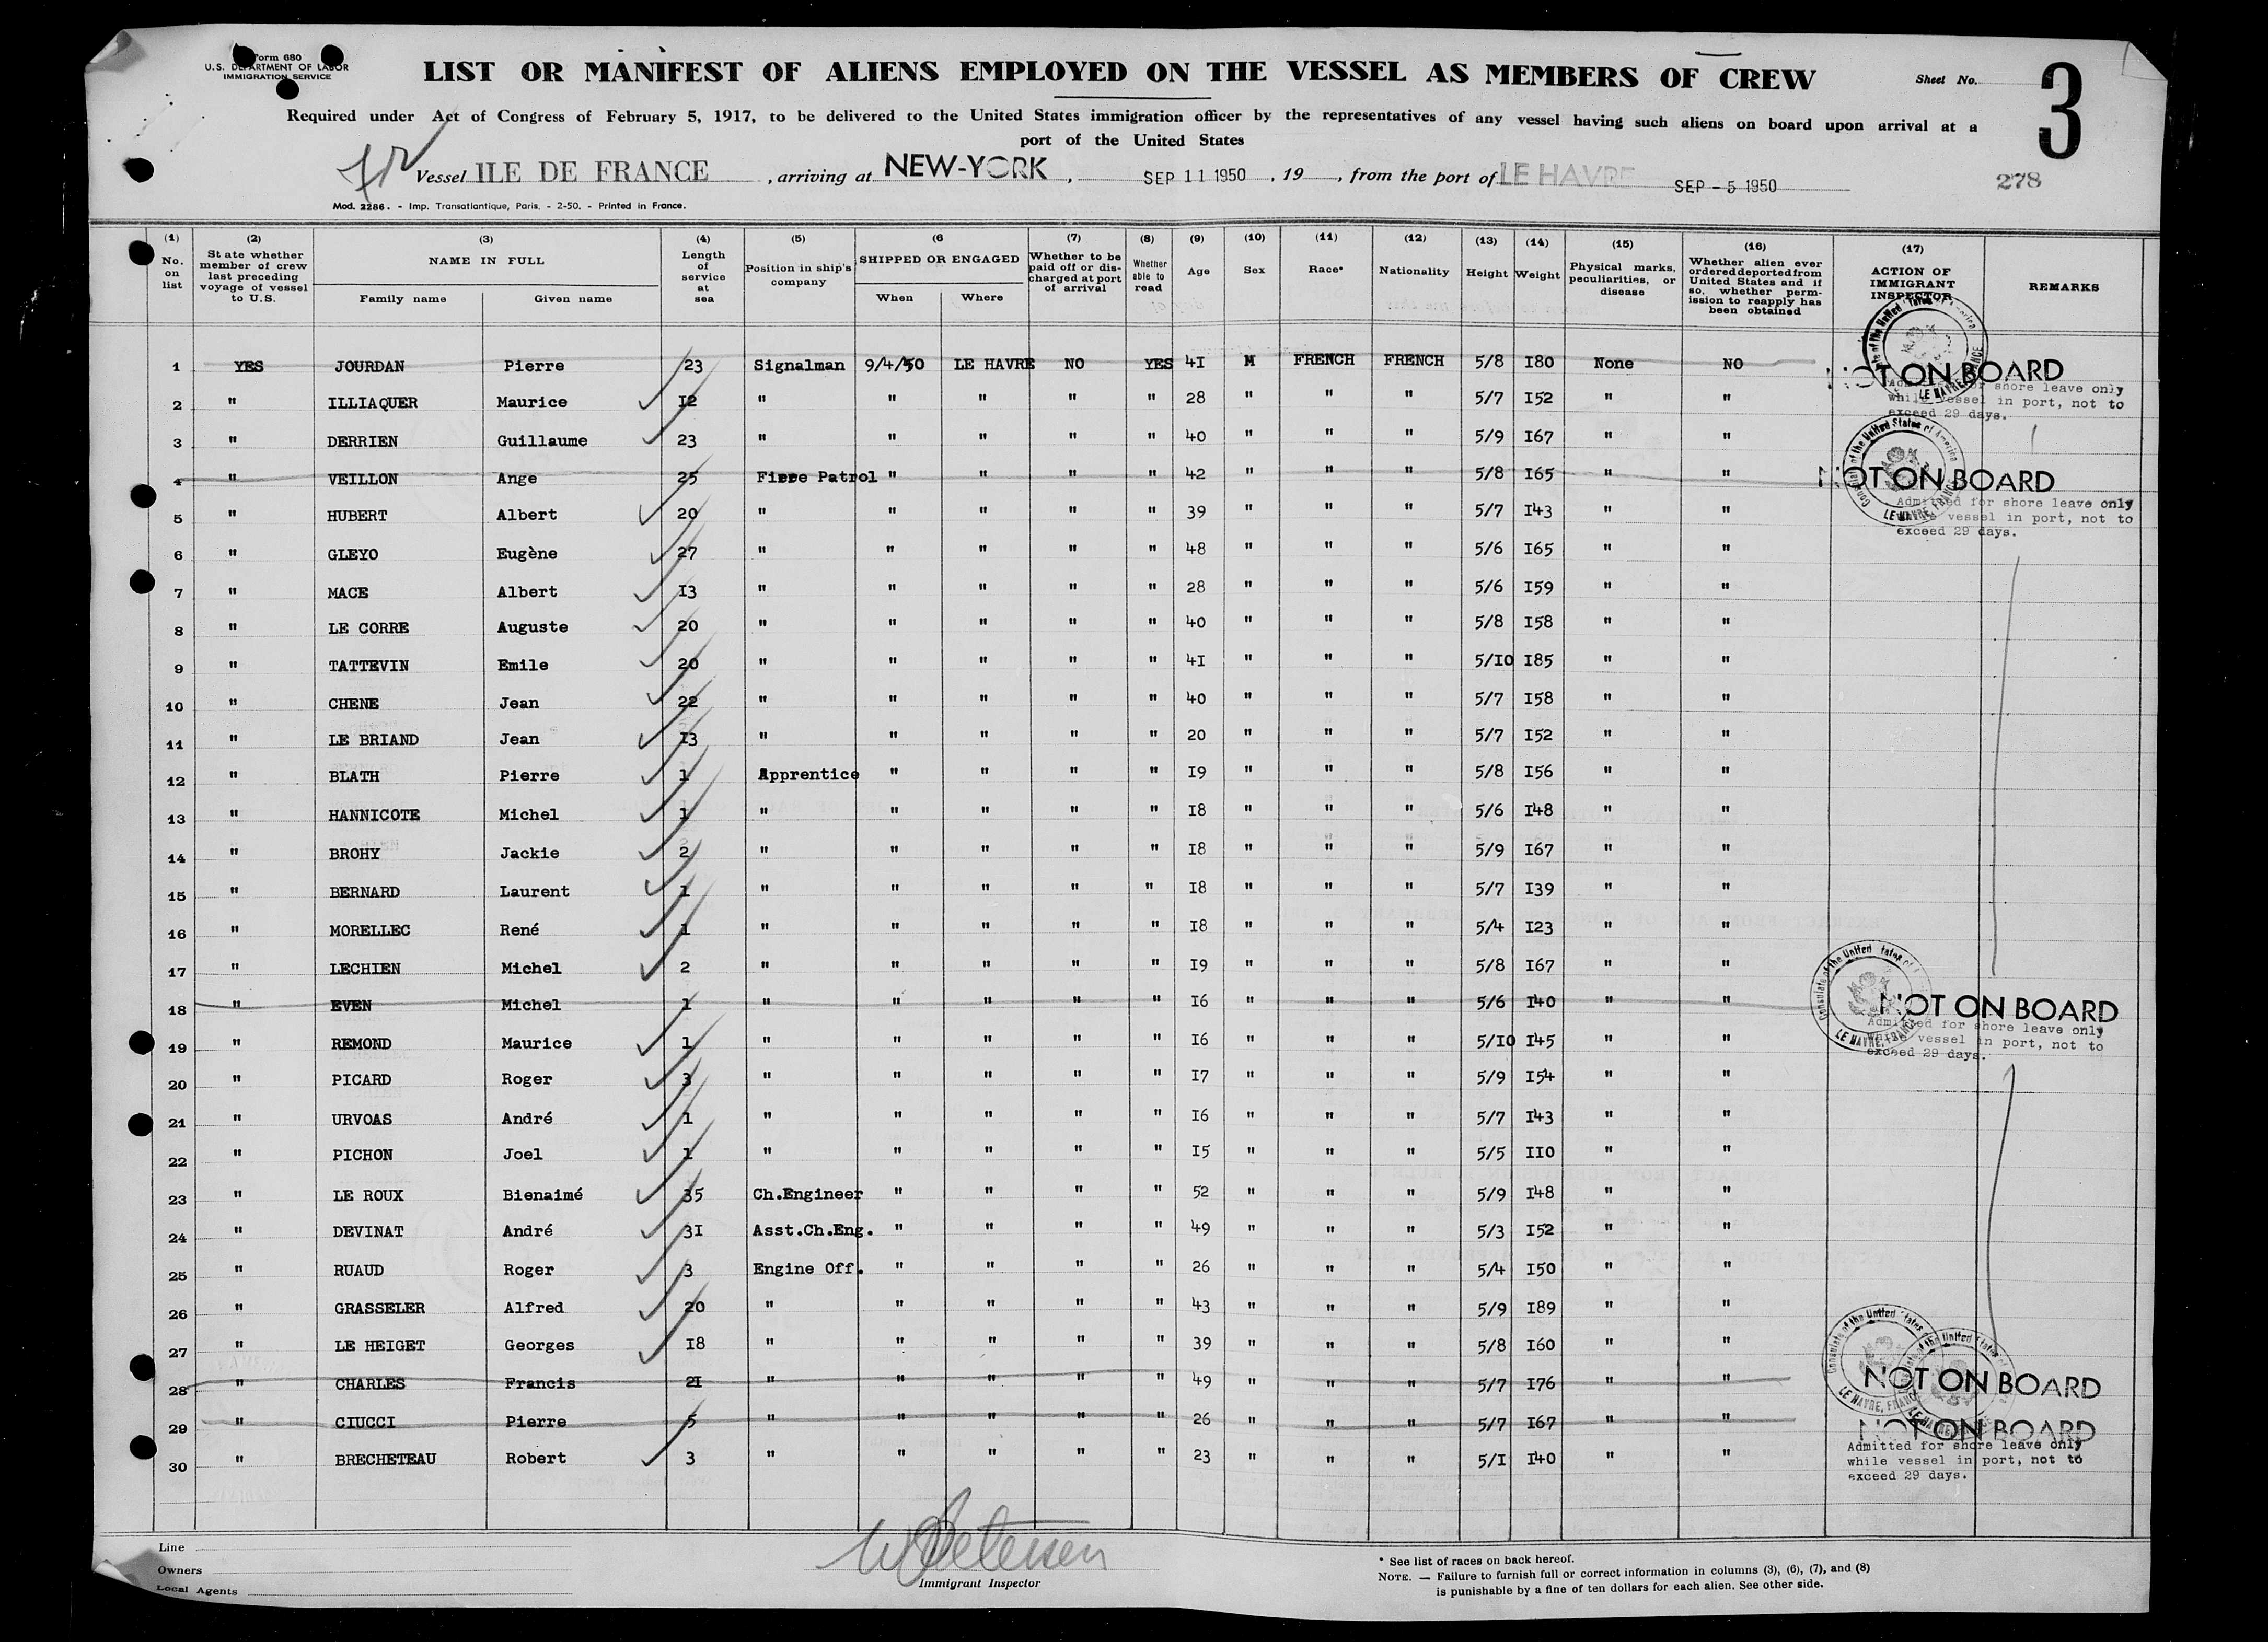 Form 680
U.S. DEPARTMENT OF LABOR
IMMIGRATION SERVICE
LIST OR MANIFEST OF ALIENS EMPLOYED ON THE VESSEL AS MEMBERS OF CREW
Sheet No. 3
Required under Act of Congress of February 5, 1917, to be delivered to the United States immigration officer by the representatives of any vessel having such aliens on board upon arrival at a
port of the United States
Vessel ILE DE FRANCE , arriving at NEW-YORK , SEP 11 1950 , 19 , from the port of LE HAVRE SEP - 5 1950
278
Mod. 2286. - Imp. Transatlantique, Paris. - 2-50. - Printed in France.
(1) No. on list
(2) State whether member of crew last preceding voyage of vessel to U.S.
(3) NAME IN FULL Family name Given name
(4) Length of service at sea
(5) Position in ship's company
(6 SHIPPED OR ENGAGED When Where
(7) Whether to be paid off or discharged at port of arrival
(8) Whether able to read
(9) Age
(10) Sex
(11) Race*
(12) Nationality
(13) Height
(14) Weight
(15) Physical marks, peculiarities, or disease
(16) Whether alien ever ordered deported from United States and if so, whether permission to reapply has been obtained
(17) ACTION OF IMMIGRANT INSPECTOR
REMARKS
1 YES JOURDAN Pierre 23 Signalman 9/4/50 LE HAVRE NO YES 4I M FRENCH FRENCH 5/8 I80 None NO NOT ON BOARD
2 " ILLIAQUER Maurice I2 " " " " " 28 " " " 5/7 I52 " " Admitted for shore leave only while vessel in port, not to exceed 29 days.
3 " DERRIEN Guillaume 23 " " " " " 40 " " " 5/9 I67 " "
4 " VEILLON Ange 25 Firre Patrol " " " " 42 " " " 5/8 I65 " " NOT ON BOARD
5 " HUBERT Albert 20 " " " " " 39 " " " 5/7 I43 " " Admitted for shore leave only while vessel in port, not to exceed 29 days.
6 " GLEYO Eugène 27 " " " " " 48 " " " 5/6 I65 " "
7 " MACE Albert I3 " " " " " 28 " " " 5/6 I59 " "
8 " LE CORRE Auguste 20 " " " " " 40 " " " 5/8 I58 " "
9 " TATTEVIN Emile 20 " " " " " 4I " " " 5/IO I85 " "
10 " CHENE Jean 22 " " " " " 40 " " " 5/7 I58 " "
11 " LE BRIAND Jean I3 " " " " " 20 " " " 5/7 I52 " "
12 " BLATH Pierre 1 Apprentice " " " " I9 " " " 5/8 I56 " "
13 " HANNICOTE Michel 1 " " " " " I8 " " " 5/6 I48 " "
14 " BROHY Jackie 2 " " " " " I8 " " " 5/9 I67 " "
15 " BERNARD Laurent 1 " " " " " I8 " " " 5/7 I39 " "
16 " MORELLEC René 1 " " " " " I8 " " " 5/4 I23 " "
17 " LECHIEN Michel 2 " " " " " I9 " " " 5/8 I67 " "
18 " EVEN Michel 1 " " " " " I6 " " " 5/6 I40 " " NOT ON BOARD
19 " REMOND Maurice 1 " " " " " I6 " " " 5/IO I45 " " Admitted for shore leave only while vessel in port, not to exceed 29 days.
20 " PICARD Roger 3 " " " " " I7 " " " 5/9 I54 " "
21 " URVOAS André 1 " " " " " I6 " " " 5/7 I43 " "
22 " PICHON Joel 1 " " " " " I5 " " " 5/5 IIO " "
23 " LE ROUX Bienaimé 35 Ch.Engineer " " " " 52 " " " 5/9 I48 " "
24 " DEVINAT André 3I Asst.Ch.Eng. " " " " 49 " " " 5/3 I52 " "
25 " RUAUD Roger 3 Engine Off. " " " " 26 " " " 5/4 I50 " "
26 " GRASSELER Alfred 20 " " " " " 43 " " " 5/9 I89 " "
27 " LE HEIGET Georges I8 " " " " " 39 " " " 5/8 I60 " "
28 " CHARLES Francis 2I " " " " " 49 " " " 5/7 I76 " " NOT ON BOARD
29 " CIUCCI Pierre 5 " " " " " 26 " " " 5/7 I67 " " NOT ON BOARD
30 " BRECHETEAU Robert 3 " " " " " 23 " " " 5/I I40 " " Admitted for shore leave only while vessel in port, not to exceed 29 days.
Consulate of the United States of America
LE HAVRE, FRANCE
Line
Owners
Local Agents
W Petersen
Immigrant Inspector
* See list of races on back hereof.
NOTE. — Failure to furnish full or correct information in columns (3), (6), (7), and (8)
is punishable by a fine of ten dollars for each alien. See other side.